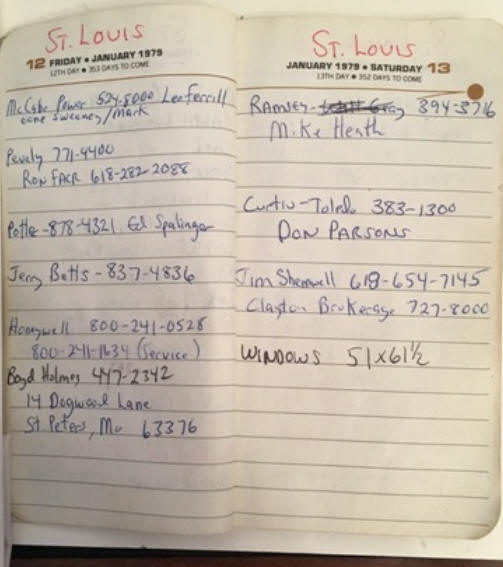 ST. LOUIS
12 FRIDAY • JANUARY 1979
12TH DAY • 353 DAYS TO COME
McCabe Power 524-5000 Lee Ferrill
Gene Sweeney/Mark
Pevely 771-4400
Ron Facr 618-282-2088
Potter-878-4321 Ed Spalinger
Jerry Batts-837-4836
Honeywell 800-241-0528
800-241-1634 (Service)
Boyd Holmes 447-2342
14 Dogwood Lane
St. Peters, Mo 63376
ST. LOUIS
JANUARY 1979 • SATURDAY 13
13TH DAY • 352 DAYS TO COME
Ramsey- 394-3716
Mike Heath
Curtis-Toledo 383-1300
DON PARSONS
Jim Shemwell 618-654-7145
Clayton Brokerage 727-8000
WINDOWS 51x61½